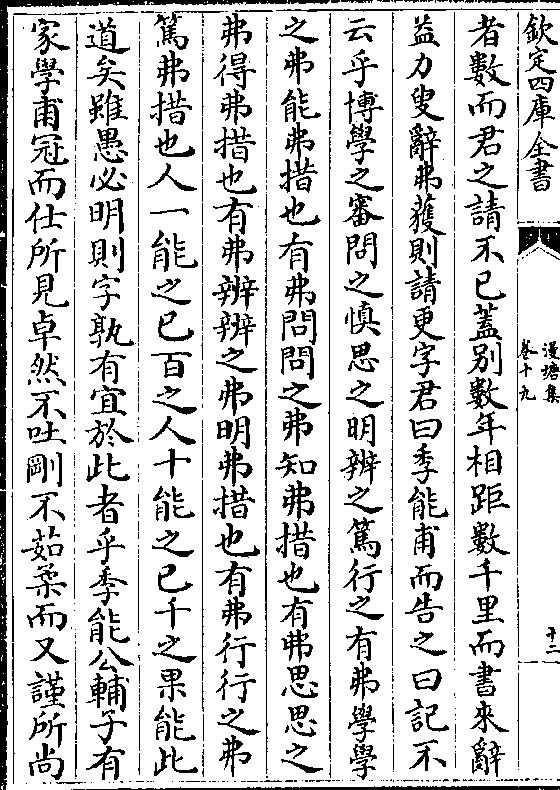 欽定四庫全書
漫塘集
卷十九
十二
者數而君之請不已蓋別數年相距數千里而書來辭
益力叟辭弗獲則請更字君曰季能甫而告之曰記不
云乎博學之審問之慎思之明辨之篤行之有弗學學
之弗能弗措也有弗問問之弗知弗措也有弗思思之
弗得弗措也有弗辨辨之弗明弗措也有弗行行之弗
篤弗措也人一能之已百之人十能之已千之果能此
道矣雖愚必明則字孰有宜於此者乎季能公輔子有
家學甫冠而仕所見卓然不吐剛不茹柔而又謹所尚